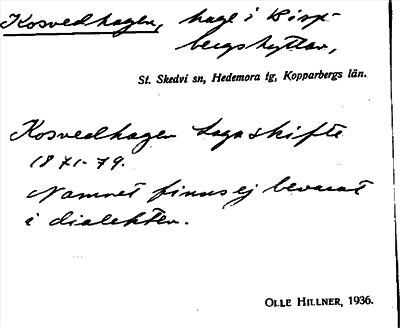 Kosvedhagen, hage i Bisp-
bergshyttan,
St. Skedvi sn, Hedemora tg, Kopparbergs län.
Kosvedhagen Laga skifte
1871-79.
Namnet finns ej bevarat
i dialekten.
OLLE HILLNER, 1936.